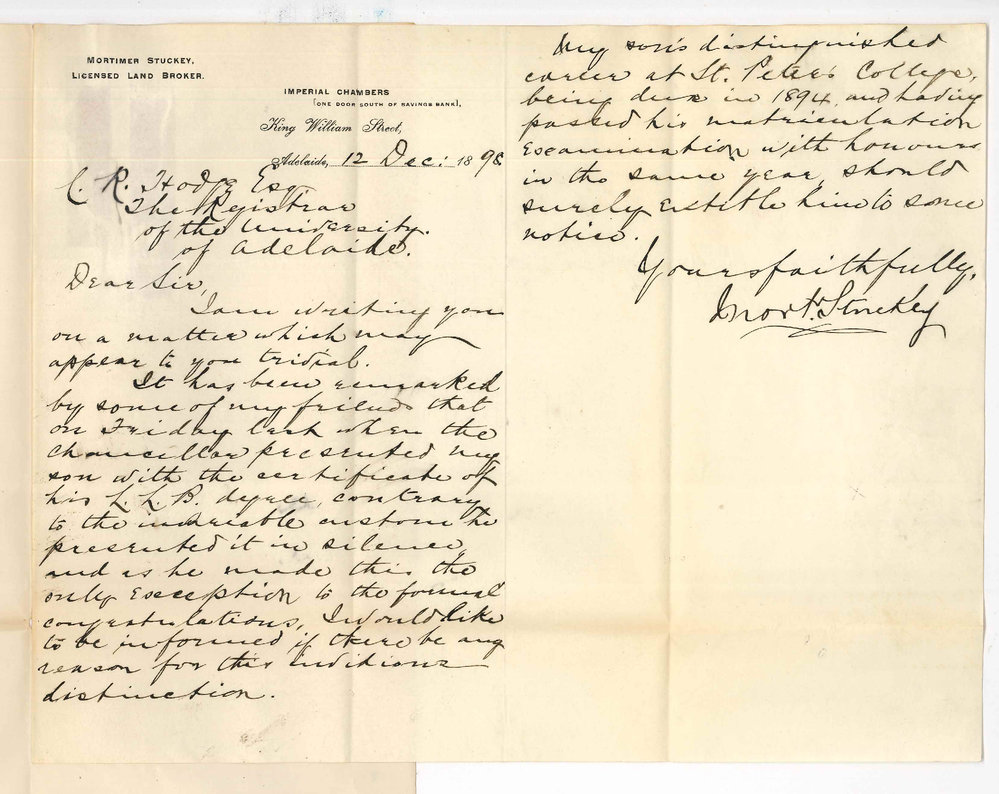 MORTIMER STUCKEY,
LICENSED LAND BROKER.
IMPERIAL CHAMBERS
(ONE DOOR SOUTH OF SAVINGS BANK),
King William Street,
Adelaide, 12 Dec: 1898
C. R. Hodge Esq.
The Registrar
of the University.
of Adelaide.
Dear Sir,
I am writing you
on a matter which may
appear to you trivial.
It has been remarked
by some of my friends that
on Friday last when the
Chancellor presented my
son with the certificate of
his L.L.B. degree, contrary
to the invariable custom he
presented it in silence,
and as he made this the
only exception to the formal
congratulations, I would like
to be informed if there be any
reason for this invidious
distinction.
My son's distinguished
career at St. Peter's College,
being dux in 1894, and having
passed his matriculation
examination with honours
in the same year, should
surely entitle him to some
notice.
Yours faithfully,
Mortr. Stuckey